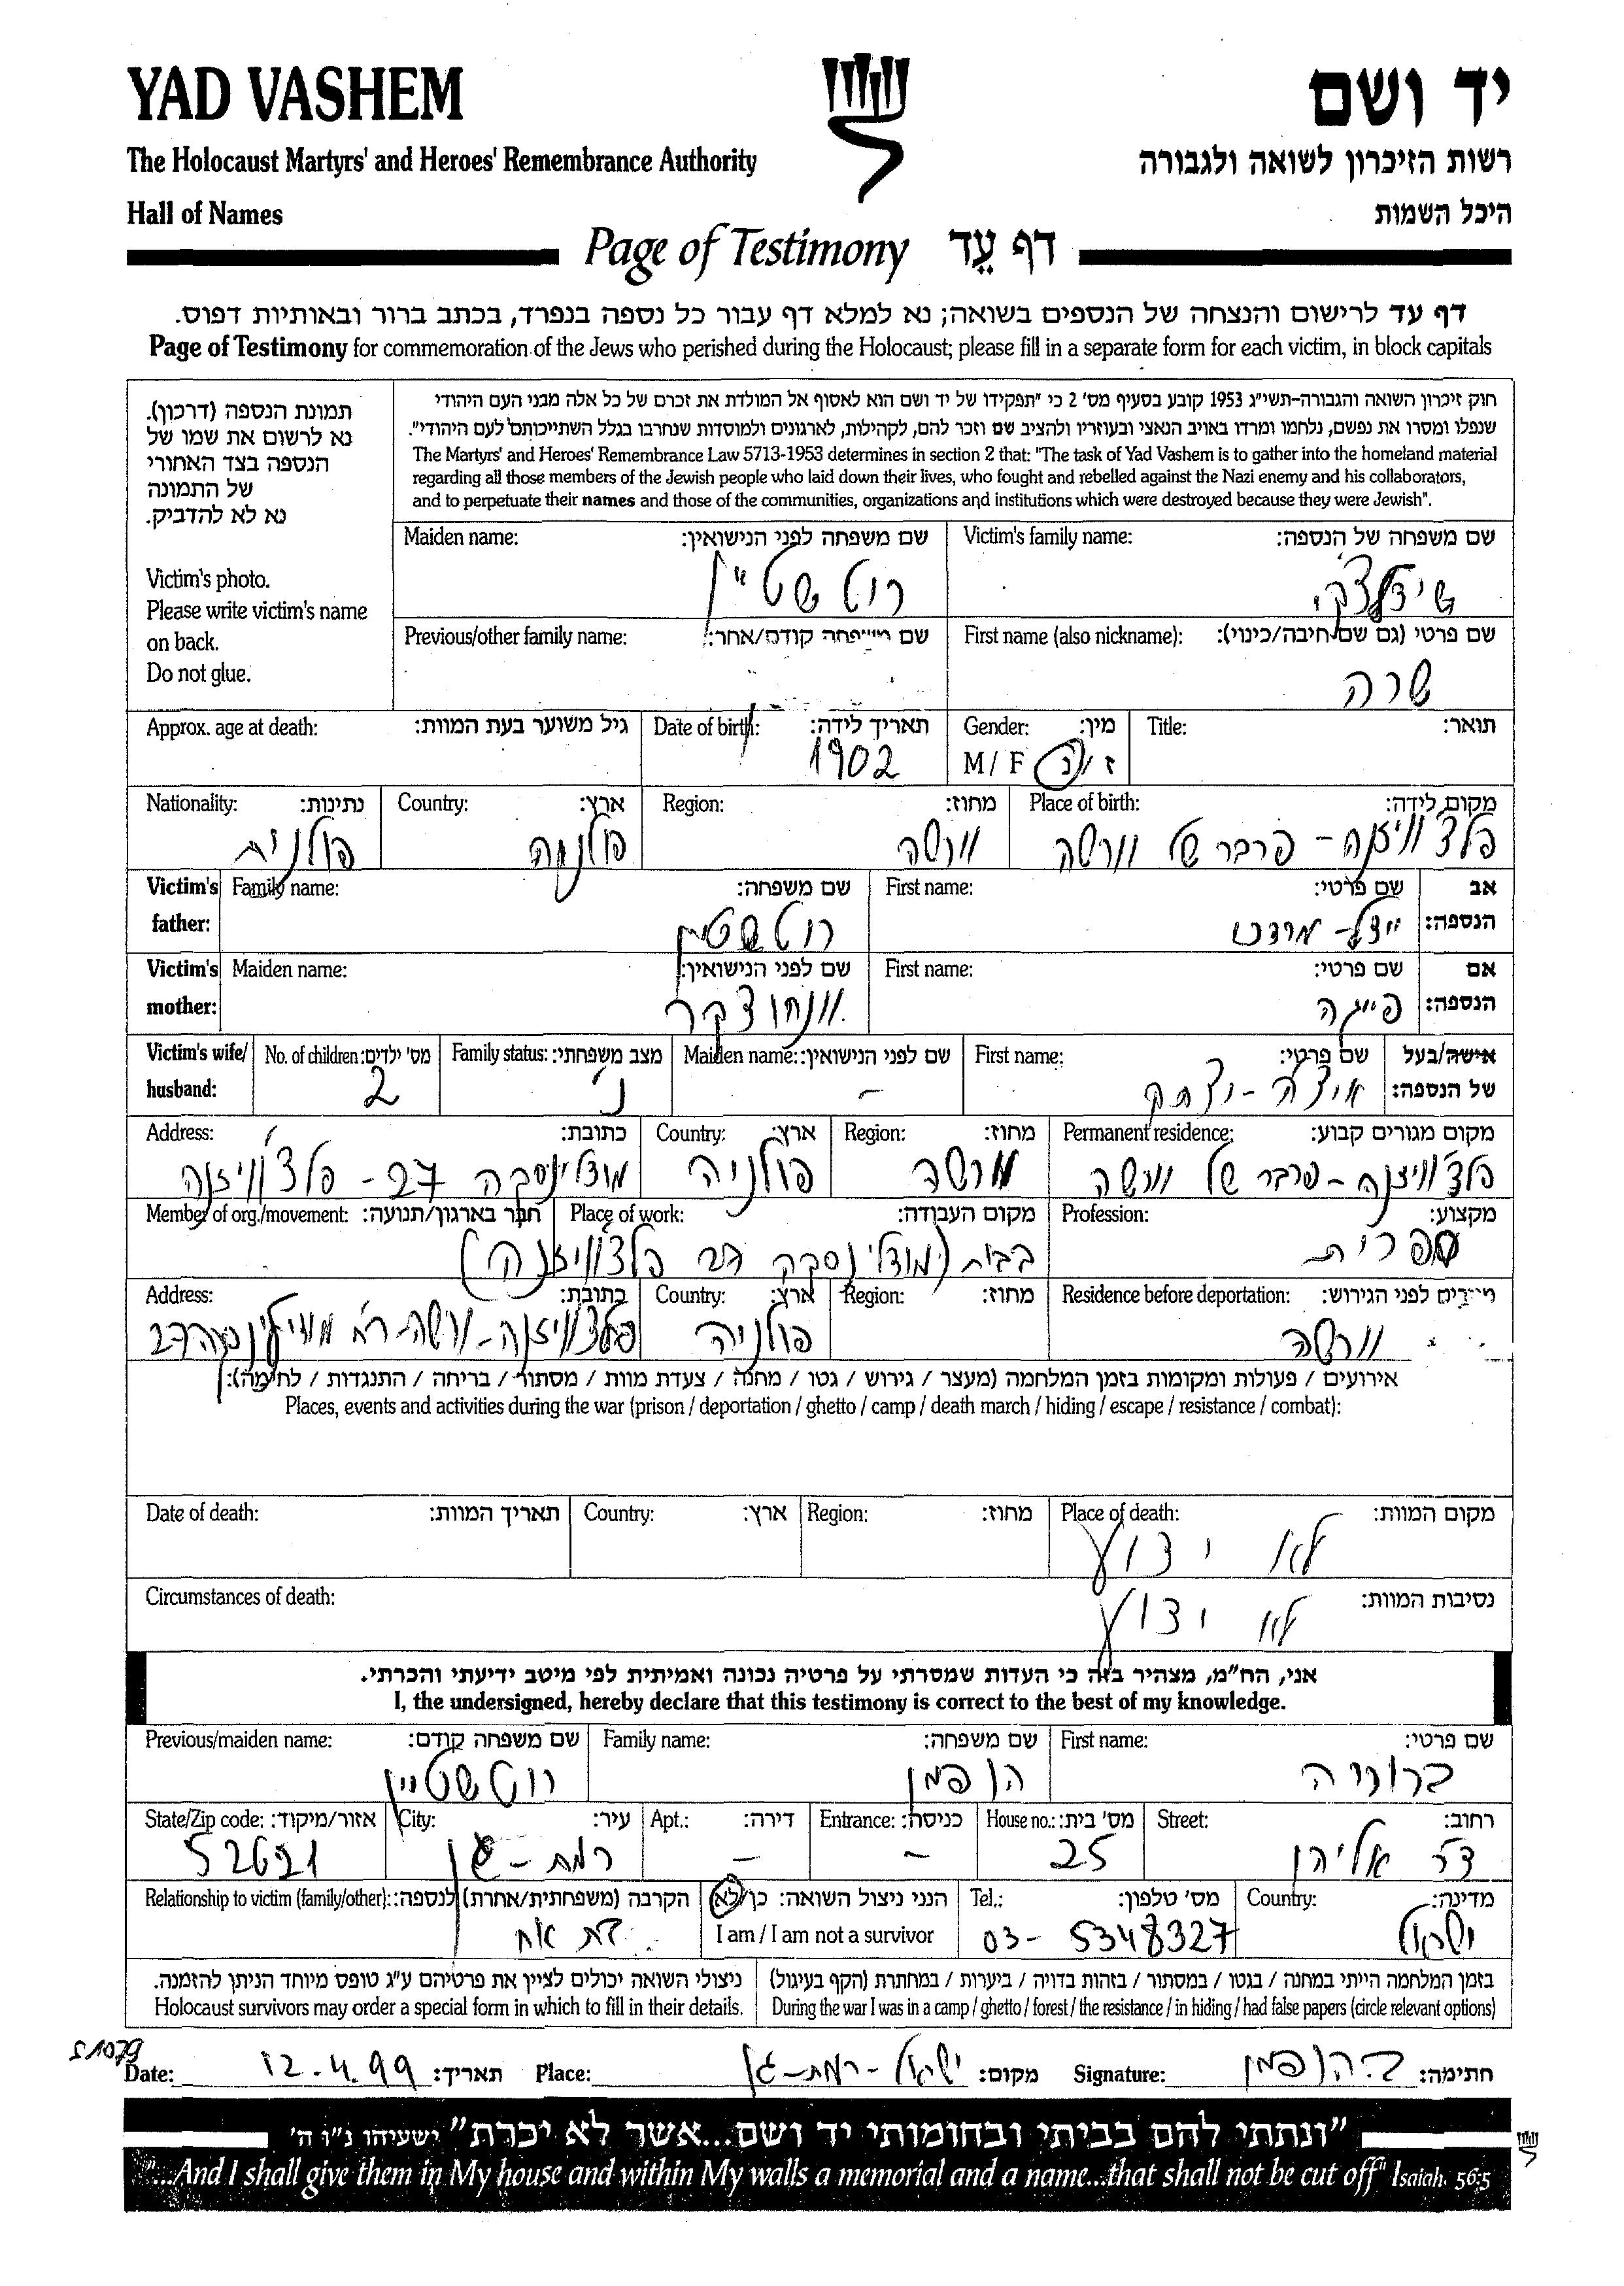 YAD VASHEM
יד ושם
The Holocaust Martyrs' and Heroes' Remembrance Authority
רשות הזיכרון לשואה ולגבורה
Hall of Names
היכל השמות
Page of Testimony דף עֵד
דף עד לרישום והנצחה של הנספים בשואה; נא למלא דף עבור כל נספה בנפרד, בכתב ברור ובאותיות דפוס.
Page of Testimony for commemoration of the Jews who perished during the Holocaust; please fill in a separate form for each victim, in block capitals
תמונת הנספה (דרכון).
נא לרשום את שמו של
הנספה בצד האחורי
של התמונה
נא לא להדביק.
Victim's photo.
Please write victim's name
on back.
Do not glue.
חוק זיכרון השואה והגבורה-תשי"ג 1953 קובע בסעיף מס' 2 כי "תפקידו של יד ושם הוא לאסוף אל המולדת את זכרם של כל אלה מבני העם היהודי
שנפלו ומסרו את נפשם, נלחמו ומרדו באויב הנאצי ובעוזריו ולהציב שם וזכר להם, לקהילות, לארגונים ולמוסדות שנחרבו בגלל השתייכותם לעם היהודי".
The Martyrs' and Heroes' Remembrance Law 5713-1953 determines in section 2 that: "The task of Yad Vashem is to gather into the homeland material
regarding all those members of the Jewish people who laid down their lives, who fought and rebelled against the Nazi enemy and his collaborators,
and to perpetuate their names and those of the communities, organizations and institutions which were destroyed because they were Jewish".
Victim's family name: שם משפחה של הנספה:
Maiden name: שם משפחה לפני הנישואין:
רוטשטיין
First name (also nickname): שם פרטי (גם שם חיבה/כינוי):
שרה
Previous/other family name: שם משפחה קודם/אחר:
Title: תואר:
Gender: מין:
M / F ז / נ
Date of birth: תאריך לידה:
1902
Approx. age at death: גיל משוער בעת המוות:
Place of birth: מקום לידה:
פלצ'וויזנה - פרבר של וורשה
Region: מחוז:
וורשה
Country: ארץ:
פולניה
Nationality: נתינות:
פולנית
Victim's father: אב הנספה:
First name: שם פרטי:
Family name: שם משפחה:
רוטשטיין
Victim's mother: אם הנספה:
First name: שם פרטי:
פייגה
Maiden name: שם לפני הנישואין:
Victim's wife/ husband: אישה/בעל של הנספה:
First name: שם פרטי:
איצ'ה - יצחק
Maiden name: שם לפני הנישואין:
-
Family status: מצב משפחתי:
נ'
No. of children: מס' ילדים:
2
Permanent residence: מקום מגורים קבוע:
פלצ'וויזנה - פרבר של וורשה
Region: מחוז:
וורשה
Country: ארץ:
פולניה
Address: כתובת:
מודלינסקה 27 - פלצ'וויזנה
Profession: מקצוע:
ספרית
Place of work: מקום העבודה:
בבית (מודלינסקה 27 פלצ'וויזנה)
Member of org./movement: חבר בארגון/תנועה:
Residence before deportation: מגורים לפני הגירוש:
וורשה
Region: מחוז:
Country: ארץ:
פולניה
Address: כתובת:
פלצ'וויזנה - וורשה רח' מודלינסקה 27
אירועים / פעולות ומקומות בזמן המלחמה (מעצר / גירוש / גטו / מחנה / צעדת מוות / מסתור / בריחה / התנגדות / לחימה):
Places, events and activities during the war (prison / deportation / ghetto / camp / death march / hiding / escape / resistance / combat):
Place of death: מקום המוות:
לא ידוע
Region: מחוז:
Country: ארץ:
Date of death: תאריך המוות:
Circumstances of death: נסיבות המוות:
לא ידוע
אני, הח"מ, מצהיר בזה כי העדות שמסרתי על פרטיה נכונה ואמיתית לפי מיטב ידיעתי והכרתי.
I, the undersigned, hereby declare that this testimony is correct to the best of my knowledge.
First name: שם פרטי:
ברוניה
Family name: שם משפחה:
הופמן
Previous/maiden name: שם משפחה קודם:
רוטשטיין
Street: רחוב:
דר' אליהו
House no.: מס' בית:
25
Entrance: כניסה:
-
Apt.: דירה:
-
City: עיר:
רמת-גן
State/Zip code: אזור/מיקוד:
52621
Country: מדינה:
ישראל
Tel.: מס' טלפון:
03- 5348327
הנני ניצול השואה: כן/לא
I am / I am not a survivor
Relationship to victim (family/other): הקרבה (משפחתית/אחרת) לנספה:
בת אח
בזמן המלחמה הייתי במחנה / בגטו / במסתור / בזהות בדויה / ביערות / במחתרת (הקף בעיגול)
During the war I was in a camp / ghetto / forest / the resistance / in hiding / had false papers (circle relevant options)
ניצולי השואה יכולים לציין את פרטיהם ע"ג טופס מיוחד הניתן להזמנה.
Holocaust survivors may order a special form in which to fill in their details.
Signature: ב. הופמן חתימה:
Place: ישראל - רמת-גן מקום:
Date: 12.4.99 תאריך:
"ונתתי להם בביתי ובחומותי יד ושם...אשר לא יכרת" ישעיהו נ"ו ה'
"...And I shall give them in My house and within My walls a memorial and a name...that shall not be cut off" Isaiah. 56:5